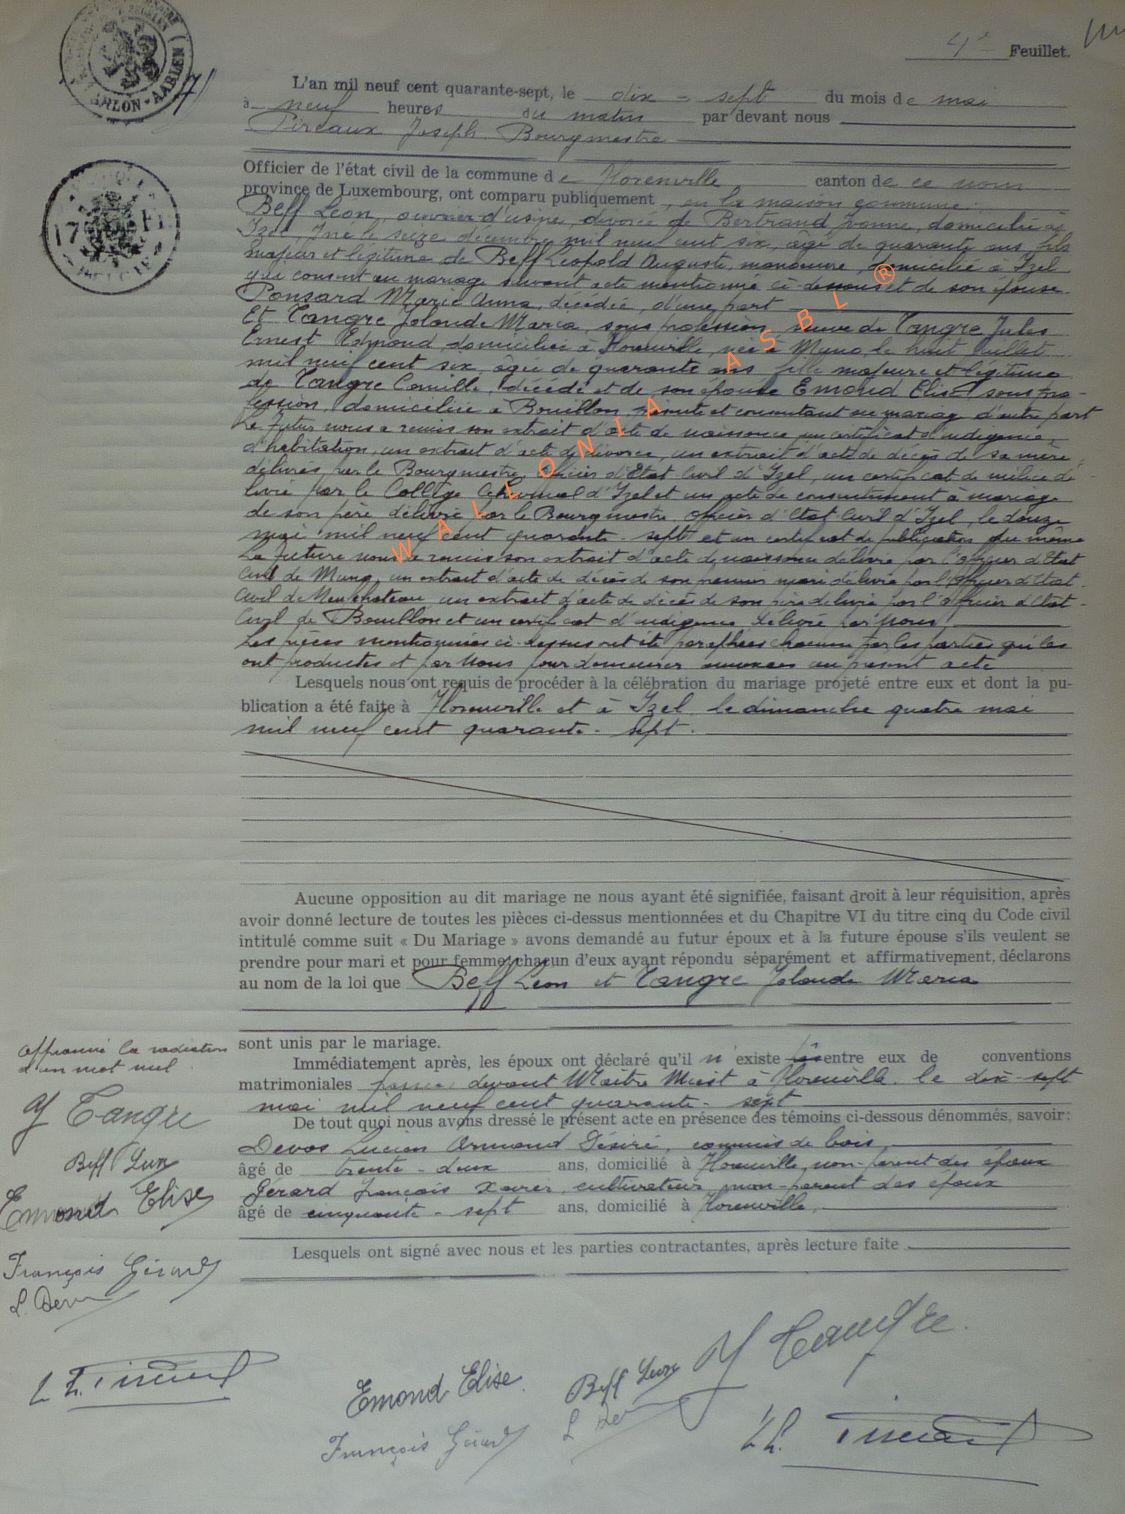 4e Feuillet.
L'an mil neuf cent quarante-sept, le dix - sept du mois de mai
à neuf heures du matin par devant nous
Pireaux Joseph Bourgmestre
Officier de l'état civil de la commune de Florenville canton de ce nom
province de Luxembourg, ont comparu publiquement, en la maison commune:
Beff Léon, ouvrier d'usine, divorcé de Bertrand Yvonne, domicilié à
Izel, né le seize décembre mil neuf cent six, âgé de quarante ans, fils
majeur et légitime de Beff Léopold Auguste, manoeuvre, domicilié à Izel
qui consent au mariage suivant acte mentionné ci-dessous et de son épouse
Ponsard Marie Anna, décédée, d'une part
Et Tangre Jolande Maria, sans profession, veuve de Tangre Jules
Ernest Edmond, domiciliée à Florenville, née à Muno, le huit juillet
mil neuf cent six, âgée de quarante ans, fille majeure et légitime
de Tangre Camille, décédé et de son épouse Emond Elise, sans pro-
fession, domiciliée à Bouillon, présente et consentant au mariage d'autre part
Le futur nous a remis son extrait d'acte de naissance, un certificat d'indigence,
d'habitation, un extrait d'acte de divorce, un extrait d'acte de décès de sa mère
délivrés par le Bourgmestre, Officier d'Etat Civil d'Izel, un certificat de milice dé-
livré par le Collège Echevinal d'Izel et un acte de consentement à mariage
de son père délivré par le Bourgmestre, Officier d'Etat Civil d'Izel, le douze
mai mil neuf cent quarante-sept et un certificat de publication du même
La future nous a remis son extrait d'acte de naissance délivré par l'Officier d'Etat
Civil de Muno, un extrait d'acte de décès de son premier mari délivré par l'Officier d'Etat-
Civil de Neufchateau, un extrait d'acte de décès de son père délivré par l'Officier d'Etat-
Civil de Bouillon et un certificat d'indigence délivré par Nous.
Les pièces mentionnées ci-dessus ont été paraphées chacune par les parties qui les
ont produites et par Nous pour demeurer annexées au présent acte
Lesquels nous ont requis de procéder à la célébration du mariage projeté entre eux et dont la pu-
blication a été faite à Florenville et à Izel, le dimanche quatre mai
mil neuf cent quarante - sept.
Aucune opposition au dit mariage ne nous ayant été signifiée, faisant droit à leur réquisition, après
avoir donné lecture de toutes les pièces ci-dessus mentionnées et du Chapitre VI du titre cinq du Code civil
intitulé comme suit « Du Mariage » avons demandé au futur époux et à la future épouse s'ils veulent se
prendre pour mari et pour femme, chacun d'eux ayant répondu séparément et affirmativement, déclarons
au nom de la loi que Beff Léon et Tangre Jolande Maria
sont unis par le mariage.
Immédiatement après, les époux ont déclaré qu'il n'existe entre eux de conventions
matrimoniales devant Maître à Florenville, le dix-sept
mai mil neuf cent quarante - sept
De tout quoi nous avons dressé le présent acte en présence des témoins ci-dessous dénommés, savoir:
Devos Lucien Armand Désiré, commis de bois,
âgé de trente - deux ans, domicilié à Florenville, non-parent des époux
Gérard François Xavier, cultivateur, non-parent des époux
âgé de cinquante - sept ans, domicilié à Florenville,
Lesquels ont signé avec nous et les parties contractantes, après lecture faite.
approuvé la radiation
d'un mot nul
Y Tangre
Beff Léon
Emond Elise
François Gérard
L. Devos
Y Tangre
Emond Elise
Beff Léon
François Gérard
WALLONIA ASBL ®